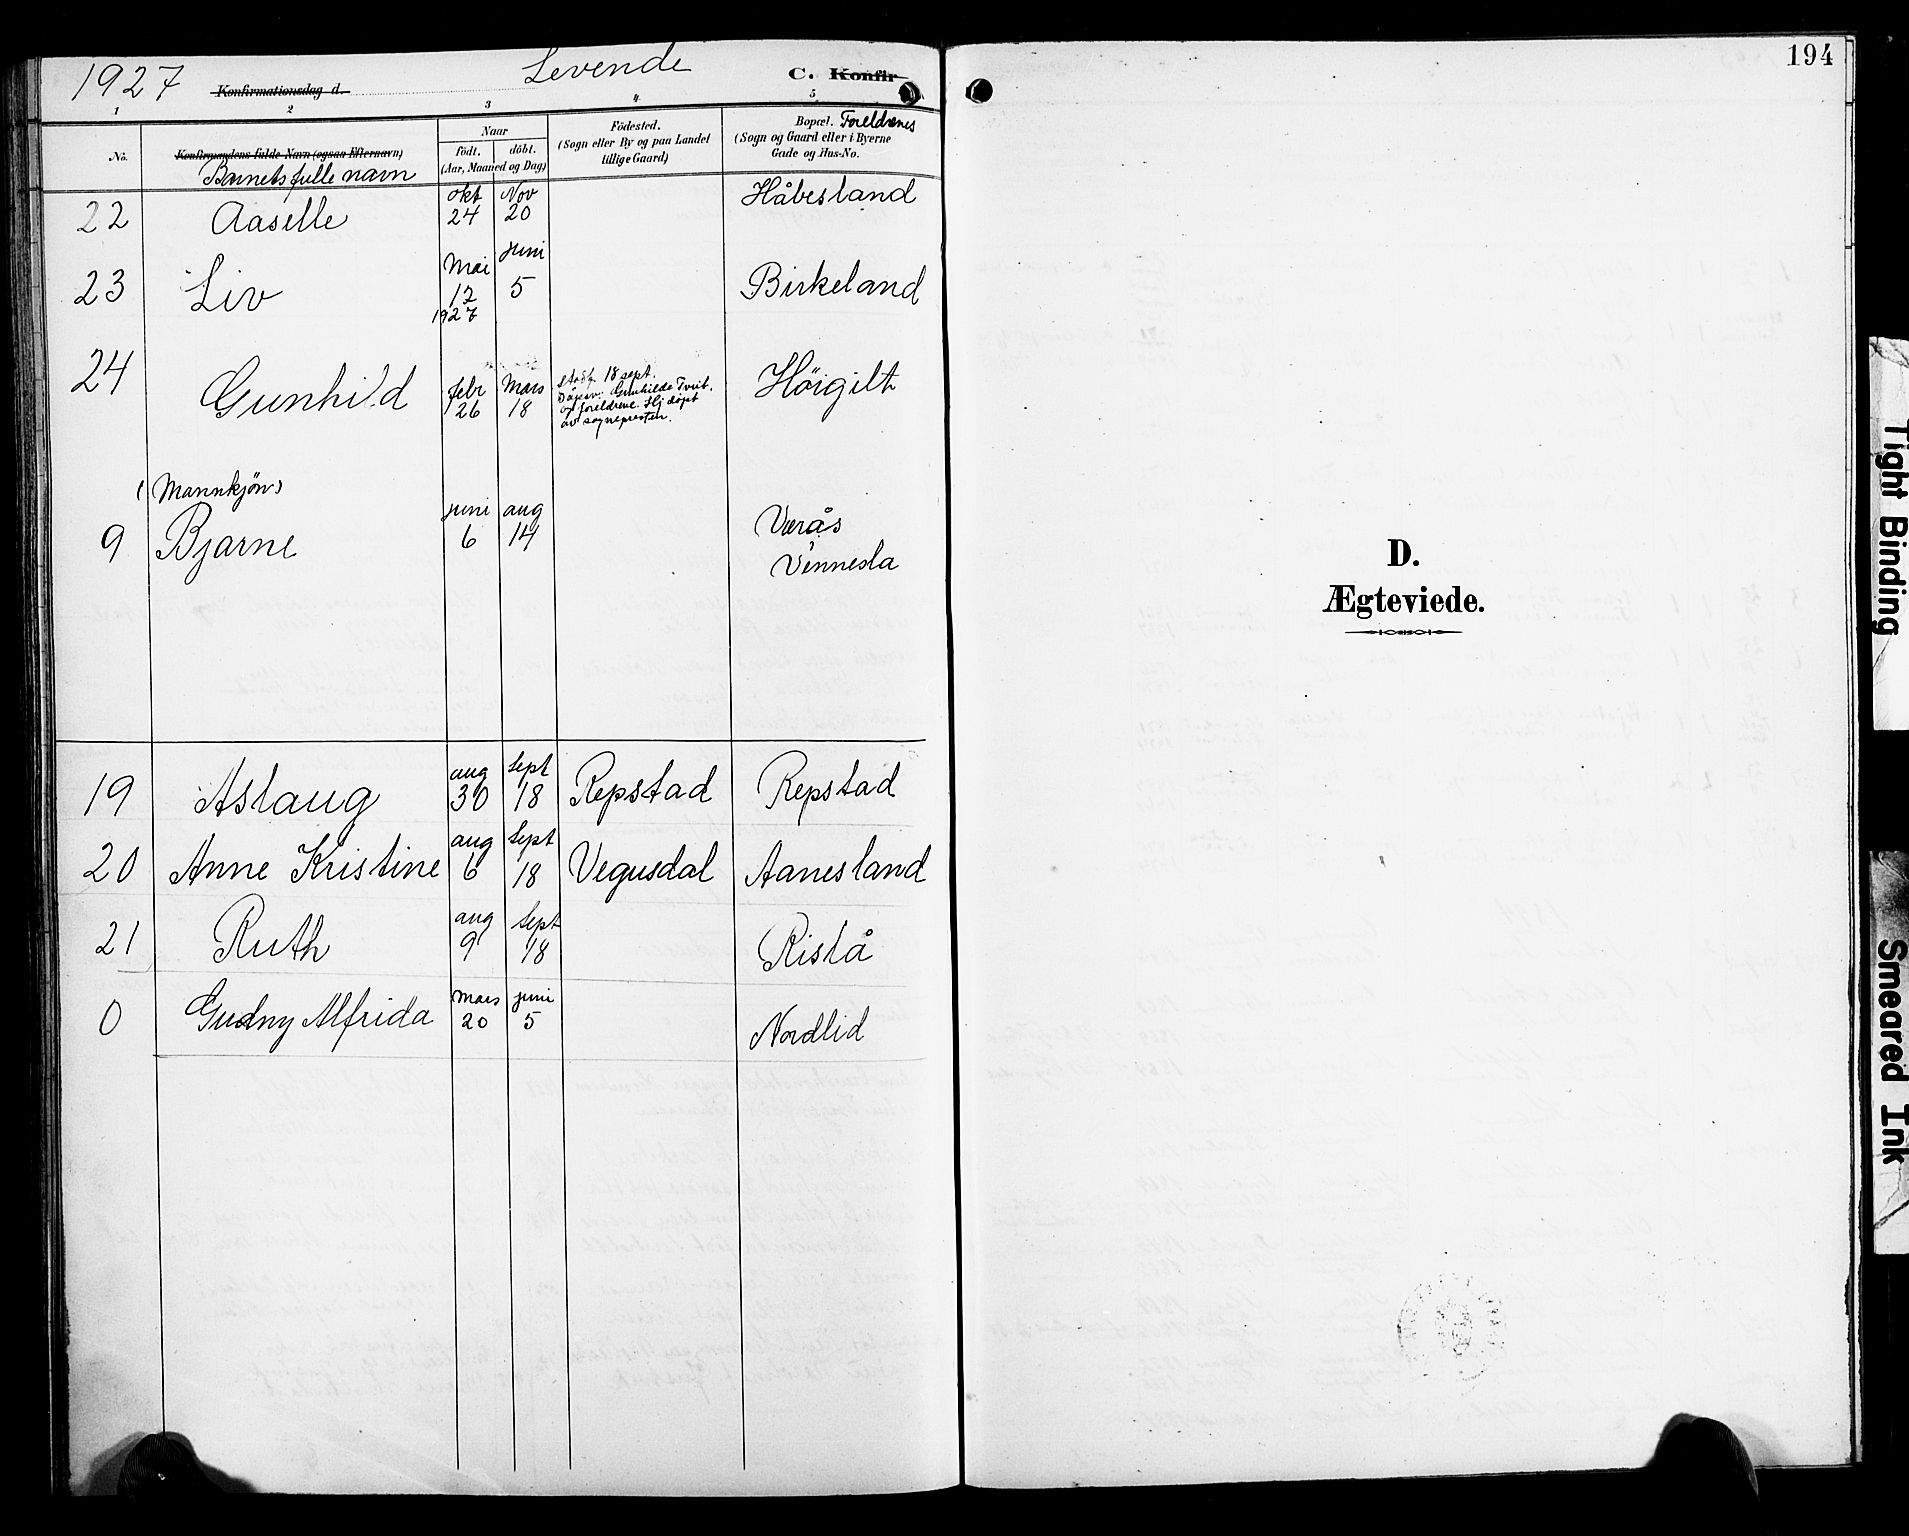 1927 Konfirmationsdag d. Levende C. Konfir-
1 2 3 4 5
No.
Konfirmandens fulde Navn (ogsaa Efternavn)
Barnets fulle navn
Naar
födt. döbt.
(Aar, Maaned og Dag)
Födested.
(Sogn eller By og paa Landet
tillige Gaard)
Bopæl. Foreldrenes
(Sogn og Gaard eller i Byerne
Gade og Hus-No.
okt Nov Håbesland
22 Aaselle 24 20
Mai Juni
23 Liv 12 5 Birkeland
1927
24 Gunhild febr 26 Mars 18 Höigilt
18 sept.
Gunhilde Tveit.
og foreldrene. Hj döpt
av sognepresten.
(Mannkjön)
juni aug Værås
9 Bjarne 6 14
Vennesla
aug Sept
19 Aslaug 30 18 Repstad Repstad
aug Sept
20 Anne Kristine 6 18 Vegusdal Aanesland
aug Sept
21 Ruth 9 18 Rislå
Mars juni
0 Gudny Alfrida 20 5 Nordlid
194
D.
Ægteviede.
Tight Binding
Smeared Ink